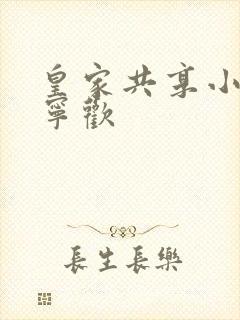 皇家共享小
寧歡
長生長樂